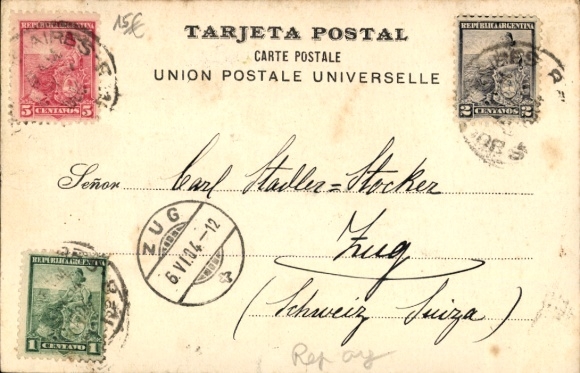 15€
TARJETA POSTAL
CARTE POSTALE
UNION POSTALE UNIVERSELLE
REPUBLICA ARGENTINA
5 CENTAVOS 5
REPUBLICA ARGENTINA
2 CENTAVOS 2
AIRES
Señor Carl Stadler=Stocker
Zug
(Schweiz Suiza)
ZUG
6.VI.04.-12
REPUBLICA ARGENTINA
1 CENTAVO 1
Rep